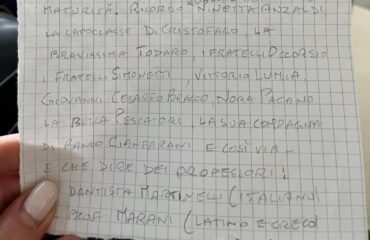 MATURITÀ. RICORDO NINETTA ANZALDI
LA CAPOCLASSE DI CRISTOFARO, LA
BRAVISSIMA TODARO, I FRATELLI DSCORSIO
I FRATELLI SIMONETTI, VITTORIO LUMIA,
GIOVANNI CESAREO BRACCO, NORA PAGANO
LA BELLA PESCATORI, LA SUA COMPAGNA
DI BANCO CIANFARANI E COSÌ VIA -
E CHE DIRE DEI PROFESSORI!
DANTISTA MARTINELLI (ITALIANO)
PROF. MARANI (LATINO E GRECO)